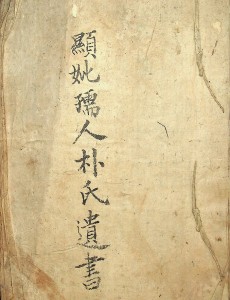 顯妣孺人朴氏遺書